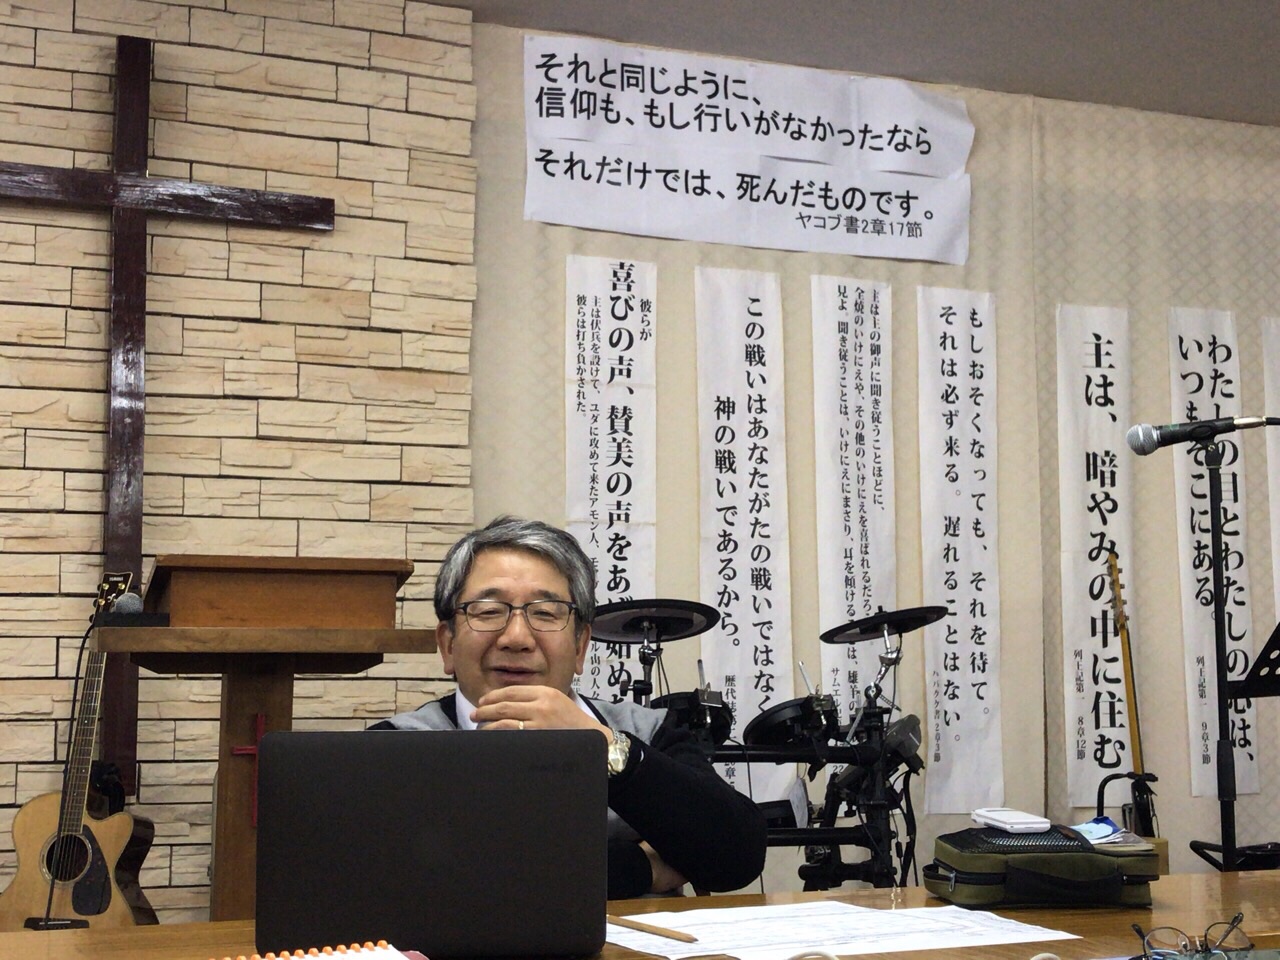 それと同じように、
信仰も、もし行いがなかったなら
それだけでは、死んだものです。
ヤコブ書2章17節
彼らが
喜びの声、賛美の声をあげ始めた
主は伏兵を設けて、ユダに攻めて来たアモン人、
彼らは打ち負かされた。
この戦いはあなたがたの戦いではなく
神の戦いであるから。
主は主の御声に聞き従うことほどに、
全焼のいけにえや、その他のいけにえを喜ばれるだろ
見よ。聞き従うことは、いけにえにまさり、耳を傾ける
は、雄羊の
もしおそくなっても、それを待て。
それは必ず来る。遅れることはない。
ハバクク書2章3節
主は、暗やみの中に住む
列王記第一 8章12節
わたしの目とわたしの心は、
いつもそこにある。
列王記第一 9章3節
YAMAHA